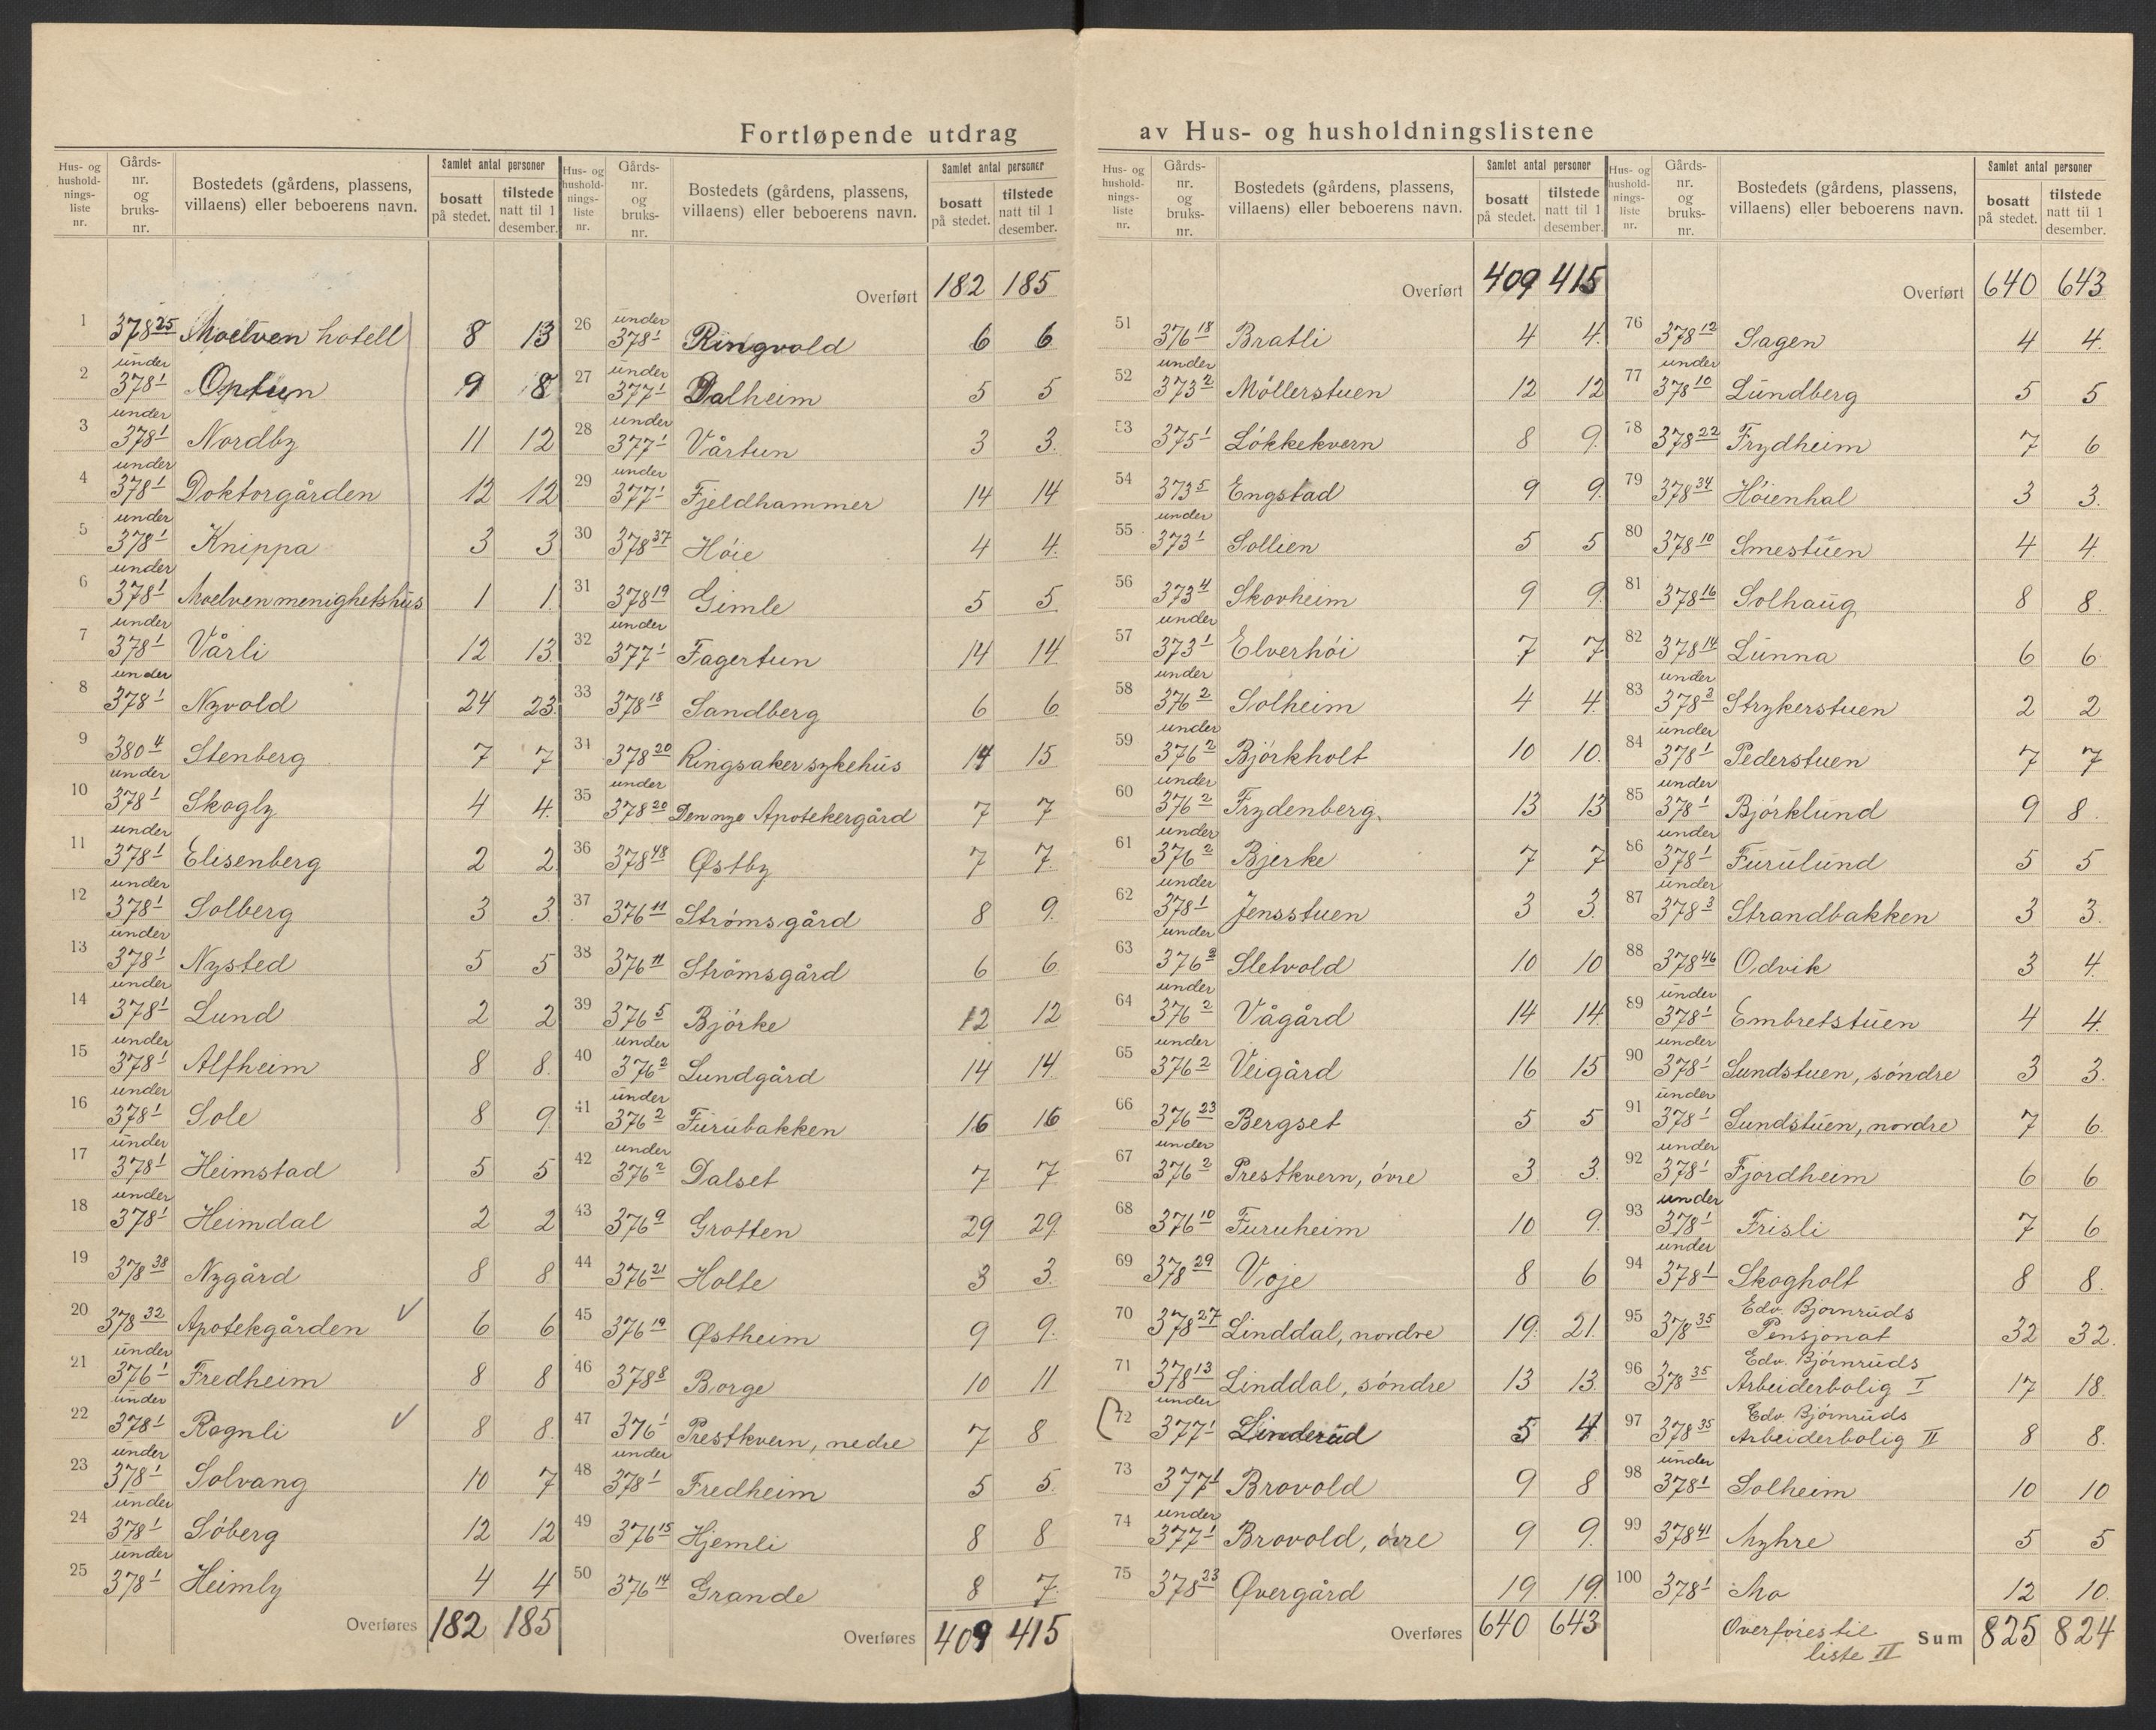 Fortløpende utdrag av Hus- og husholdningslistene
Hus- og husholdnings- liste nr. | Gårds- nr. og bruks- nr. | Bostedets (gårdens, plassens, villaens) eller beboerens navn. | Samlet antal personer: bosatt på stedet. | tilstede natt til 1 desember.
1 378 25 Moelven hotell 8 13
2 under 378 1 Optun 9 8
3 under 378 1 Nordby 11 12
4 under 378 1 Doktorgården 12 12
5 under 378 1 Knippa 3 3
6 under 378 1 Moelven menighetshus 1 1
7 under 378 1 Vårli 12 13
8 under 378 1 Nyvold 24 23
9 380 4 Stenberg 7 7
10 under 378 1 Skogly 4 4
11 under 378 1 Elisenberg 2 2
12 under 378 1 Solberg 3 3
13 under 378 1 Nysted 5 5
14 under 378 1 Lund 2 2
15 under 378 1 Alfheim 8 8
16 under 378 1 Sole 8 9
17 under 378 1 Heimstad 5 5
18 under 378 1 Heimdal 2 2
19 378 38 Nygård 8 8
20 378 32 Apotekgården 6 6
21 under 376 1 Fredheim 8 8
22 under 378 1 Ragnli 8 8
23 under 378 1 Solvang 10 7
24 under 378 1 Söberg 12 12
25 under 378 1 Heimly 4 4
Overføres 182 185
Hus- og husholdnings- liste nr. | Gårds- nr. og bruks- nr. | Bostedets (gårdens, plassens, villaens) eller beboerens navn. | Samlet antal personer: bosatt på stedet. | tilstede natt til 1 desember.
Overført 182 185
26 under 378 1 Ringvold 6 6
27 under 377 1 Dalheim 5 5
28 under 377 1 Vårtun 3 3
29 under 377 1 Fjeldhammer 14 14
30 378 37 Höie 4 4
31 378 19 Gimle 5 5
32 under 377 1 Fagertun 14 14
33 378 18 Sandberg 6 6
34 378 20 Ringsaker sykehus 14 15
35 under 378 20 Den nye Apotekergård 7 7
36 378 48 Østby 7 7
37 376 11 Strömsgård 8 9
38 376 11 Strömsgård 6 6
39 376 5 Björke 12 12
40 under 376 2 Lundgård 14 14
41 under 376 2 Furubakken 16 16
42 under 376 2 Dalset 7 7
43 376 9 Grotten 29 29
44 376 21 Holte 3 3
45 376 19 Østheim 9 9
46 378 8 Borge 10 11
47 376 1 Prestkvern, nedre 7 8
48 under 378 1 Fredheim 5 5
49 376 15 Hjemli 8 8
50 376 14 Grande 8 7
Overføres 409 415
Hus- og husholdnings- liste nr. | Gårds- nr. og bruks- nr. | Bostedets (gårdens, plassens, villaens) eller beboerens navn. | Samlet antal personer: bosatt på stedet. | tilstede natt til 1 desember.
Overført 409 415
51 376 18 Bratli 4 4
52 under 373 2 Möllerstuen 12 12
53 375 1 Lökkekvern 8 9
54 373 5 Engstad 9 9
55 under 373 1 Sollien 5 5
56 373 4 Skovheim 9 9
57 under 373 1 Elverhöi 7 7
58 under 376 2 Solheim 4 4
59 under 376 2 Björkholt 10 10
60 under 376 2 Frydenberg 13 13
61 under 376 2 Bjerke 7 7
62 under 378 1 Jensstuen 3 3
63 under 376 2 Sletvold 10 10
64 under 376 2 Vågård 14 14
65 under 376 2 Veigård 16 15
66 376 23 Bergset 5 5
67 under 376 2 Prestkvern, övre 3 3
68 376 10 Furuheim 10 9
69 378 29 Voje 8 6
70 378 27 Linddal, nordre 19 21
71 378 13 Linddal, söndre 13 13
72 under 377 1 Linderud 5 4
73 377 1 Brovold 9 8
74 under 377 1 Brovold, övre 9 9
75 378 23 Øvergård 19 19
Overføres 640 643
Hus- og husholdnings- liste nr. | Gårds- nr. og bruks- nr. | Bostedets (gårdens, plassens, villaens) eller beboerens navn. | Samlet antal personer: bosatt på stedet. | tilstede natt til 1 desember.
Overført 640 643
76 378 12 Sagen 4 4
77 under 378 10 Lundberg 5 5
78 378 22 Frydheim 7 6
79 378 34 Höienhal 3 3
80 378 10 Smestuen 4 4
81 378 16 Solhaug 8 8
82 378 14 Lunna 6 6
83 under 378 3 Strykerstuen 2 2
84 under 378 1 Pederstuen 7 7
85 under 378 1 Björklund 9 8
86 under 378 1 Furulund 5 5
87 under 378 3 Strandbakken 3 3
88 378 46 Odvik 3 4
89 under 378 1 Embretstuen 4 4
90 under 378 1 Sundstuen, söndre 3 3
91 under 378 1 Sundstuen, nordre 7 6
92 under 378 1 Fjordheim 6 6
93 under 378 1 Frisli 7 6
94 under 378 1 Skogholt 8 8
95 378 35 Edv. Björnruds Pensjonat 32 32
96 378 35 Edv. Björnruds Arbeiderbolig I 17 18
97 378 35 Edv. Björnruds Arbeiderbolig II 8 8
98 under 378 1 Solheim 10 10
99 378 41 Myhre 5 5
100 378 1 Mo 12 10
Overföres til liste II Sum 825 824